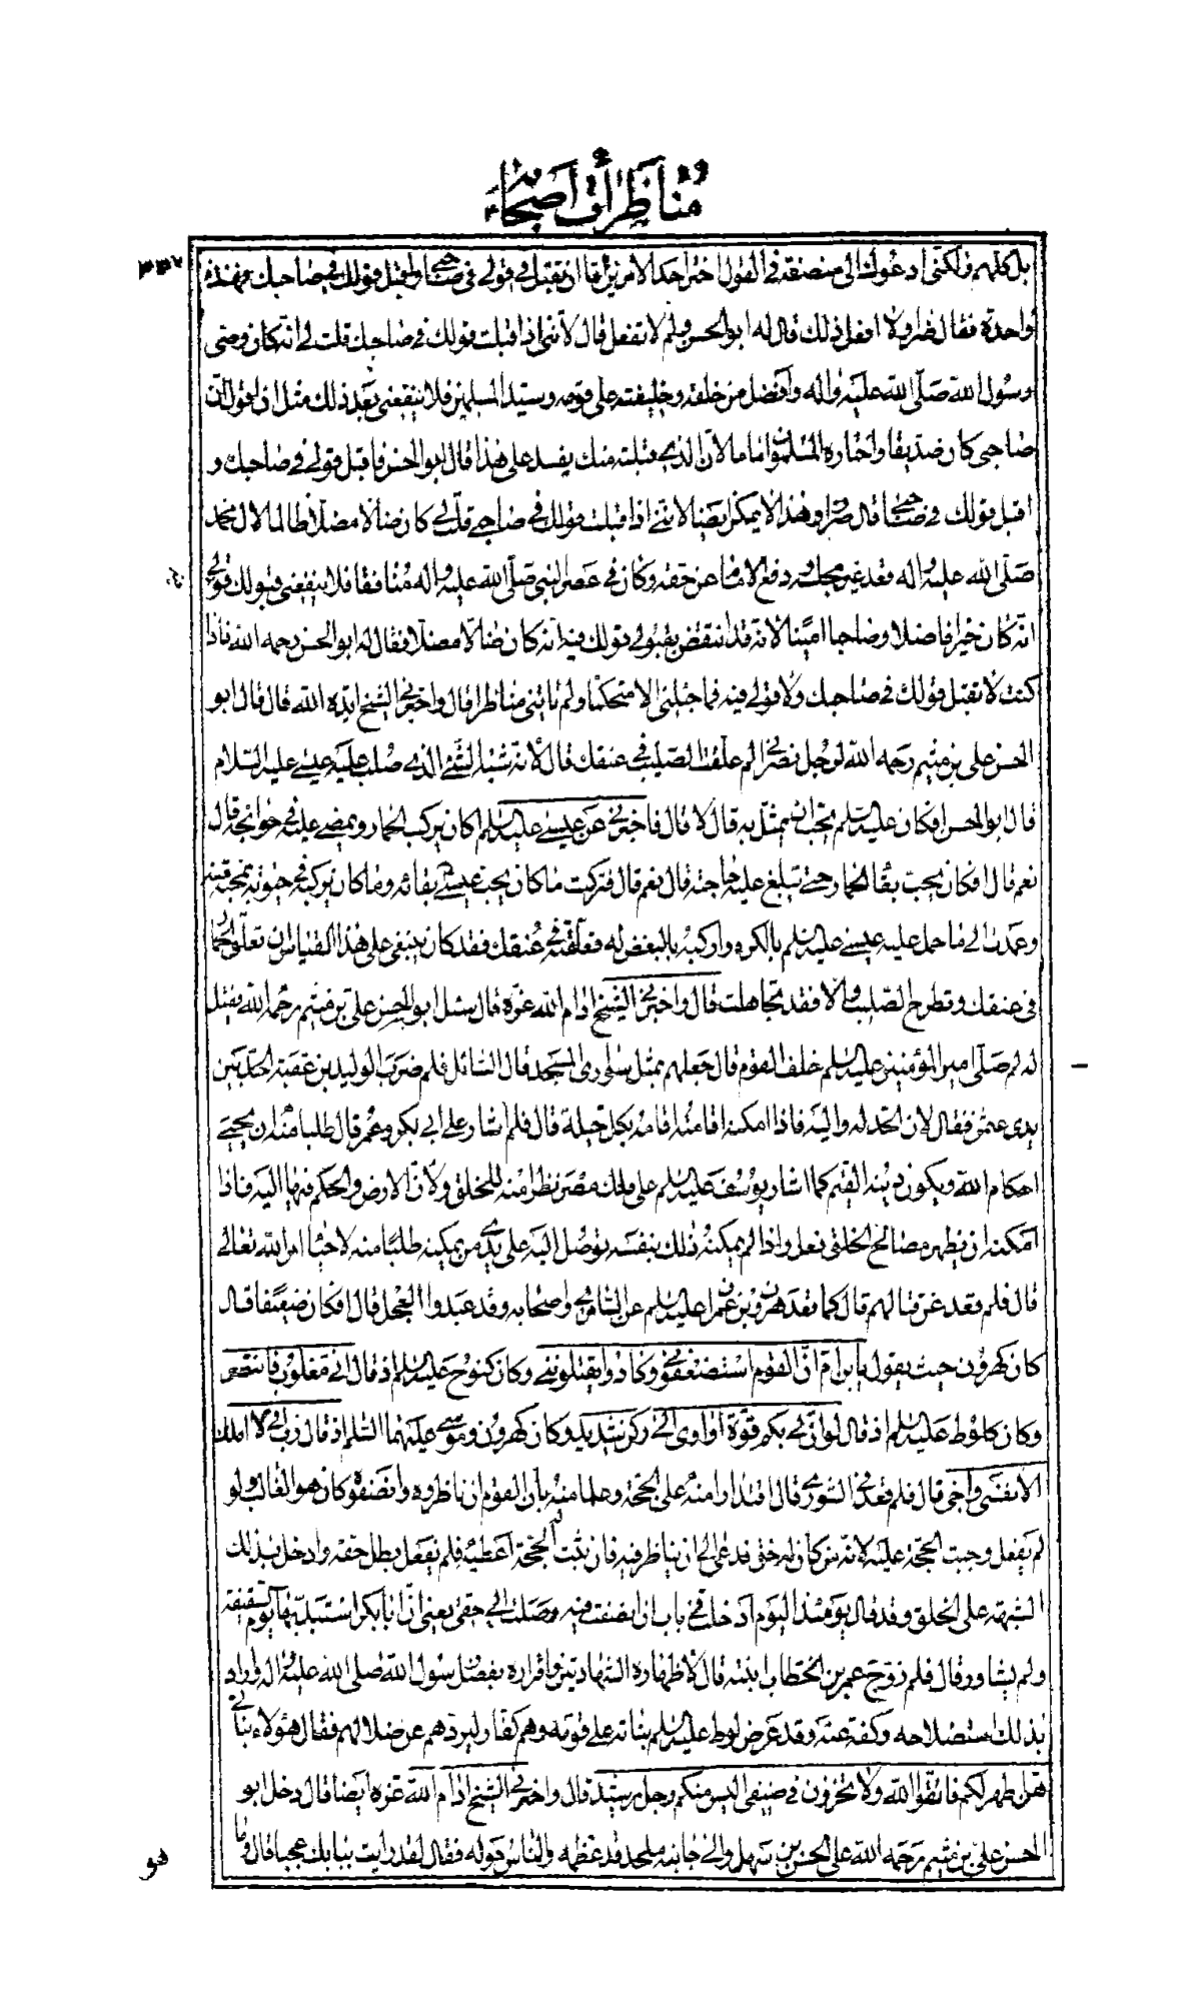 مناظرات أصحابه
٣٣٧
بل كلهم ولكنى ادعوك الى منصفة فى القول اختر احد الامرين اما ان تقبل قولى فى صاحبى واقبل قولك فى صاحبك فهذه
واحدة فقال ضرار ولا افعل ذلك قال له ابوالحسن ولم لا تفعل قال لاننى اذا قبلت قولك فى صاحبك قلت لى انه كان وصى
رسول الله صلى الله عليه واله وافضل من خلفه وخليفته على قومه وسيد المسلمين فلا ينفعنى بعد ذلك مثل ان اقول ان
صاحبى كان صديقا واختاره المسلمون اماما لان الذى قبلته منك يفسد على هذا قال ابوالحسن فاقبل قولى فى صاحبك و
اقبل قولك فى صاحبى قال ضرار وهذا لا يمكن ايضا لاننى اذا قبلت قولك فى صاحبى قلت لى كان ضالا مضلا ظالما لال محمد
صلى الله عليه واله قعد غير مجلسه ودفع الامام عن حقه وكان فى عصر النبى صلى الله عليه واله منافقا فلا ينفعنى قبولك قولى
انه كان خيرا فاضلا وصاحبا امينا لانه قد انتقض بقبولى قولك فيه انه كان ضالا مضلا فقال له ابوالحسن رحمه الله فاذا
كنت لا تقبل قولك فى صاحبك ولا قولى فيه فما جئتنى الا متحكما ولم تاتنى مناظرا قال واخبرنى الشيخ ايده الله قال قال ابو
الحسن على بن ميثم رحمه الله لرجل نصرانى لم علقت الصليب فى عنقك قال لانه شبه الشئ الذى صلب عليه عيسى عليه السلام
قال ابوالحسن افكان عليه السلم يحب ان يمثل به قال لا قال فاخبرنى عن عيسى عليه السلم اكان يركب الحمار ويمضى عليه فى حوائجه قال
نعم قال افكان يحب بقاء الحمار حتى تبلغ عليه حاجته قال نعم قال فتركت ما كان يحب عيسى بقائه وما كان يركبه فى حيوته بمحبة منه
وعمدت الى ما حمل عليه عيسى عليه السلم بالكره واركبه بالبغض له فعلقته فى عنقك فقد كان ينبغى على هذا القياس ان تعلق الحمار
فى عنقك وتطرح الصليب والا فقد تجاهلت قال واخبرنى الشيخ ادام الله عزه قال سئل ابوالحسن على بن ميثم رحمه الله فقيل
له لم صلى امير المؤمنين عليه السلم خلف القوم قال جعلهم بمثل سوارى المسجد قال السائل فلم ضرب الوليد بن عقبة الحد بين
يدى عثمن فقال لان الحد له واليه فاذا امكنه اقامته اقامه بكل حيلة قال فلم اشار على ابى بكر وعمر قال طلبا منه ان يحيى
احكام الله ويكون دينه القيم كما اشار يوسف عليه السلم على ملك مصر نظرا منه للخلق ولان الارض والحكم فيها اليه فاذا
امكنه ان يظهر مصالح الخلق فعل واذا لم يمكنه ذلك بنفسه توصل اليه على يدى من يمكنه طلبا منه لاحياء امر الله تعالى
قال فلم قعد عن قتالهم قال كما قعد هرون بن عمران عليه السلم عن السامرى واصحابه وقد عبدوا العجل قال افكان ضعيفا قال
كان كهرون حيث يقول يابن ام ان القوم استضعفونى وكادوا يقتلوننى وكان كنوح عليه السلم اذ قال انى مغلوب فانتصر
وكان كلوط عليه السلم اذ قال لو ان لى بكم قوة او اوى الى ركن شديد وكان كهرون وموسى عليهما السلم اذ قال رب انى لا املك
الا نفسى واخى قال فلم قعد فى الشورى قال اقتدارا منه على الحجة وعلما منه بان القوم ان ناظروه وانصفوه كان هو الغالب ولو
لم يفعل وجبت الحجة عليه لانه من كان له حق فدعى الى ان يناظر فيه فان ثبت له الحجة اعطيه فلم يفعل بطل حقه وادخل بذلك
الشبهة على الخلق وقد قال يومئذ اليوم ادخلت فى باب ان انصفت فيه وصلت الى حقى يعنى ان ابابكر استبد بها يوم السقيفة
ولم يشاور وقال فلم زوج عمر بن الخطاب ابنته قال لاظهاره الشهادتين واقراره بفضل رسول الله صلى الله عليه واله واراد
بذلك استصلاحه وكفه عنه وقد عرض لوط عليه السلم بناته على قومه وهم كفار ليردهم عن ضلالهم فقال هؤلاء بناتى
هن اطهر لكم فاتقوا الله ولا تخزون فى ضيفى اليس منكم رجل رشيد قال واخبرنى الشيخ ادام الله عزه ايضا قال دخل ابو
الحسن على بن ميثم رحمه الله على الحسن بن سهل والى جانبه ملحد قد عظمه والناس حوله فقال لقد رايت ببابك عجبا قال وما
هو